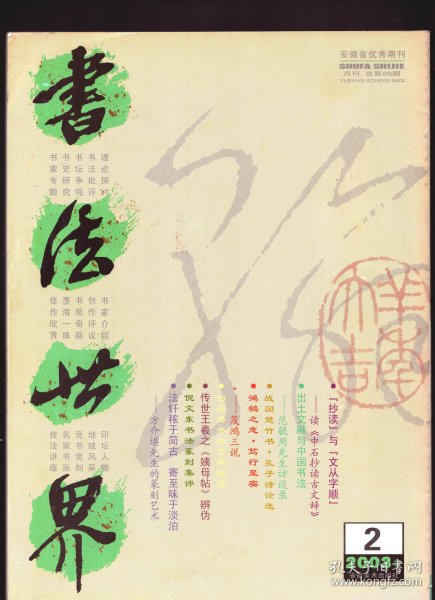 安徽省优秀期刊
SHUFA SHIJIE
月刊 总第86期
YUEKAN ZONGDI 86QI
書法世界
理论探讨
书法批评
书坛争鸣
书史研究
书家专题
书家介绍
创作评议
书苑奇葩
墨海一珠
佳作欣赏
印坛人物
地域风采
竞书竞刻
名家书画
技法讲座
「抄读」与「文从字顺」
——读《中石抄读古文辞》
出土文献与中国书法
——范毓周先生访谈录
战国楚竹书·孔子诗论选
鸿鹄之志·笃行至实
——茂鸿三说
传世王羲之《姨母帖》辨伪
倪文东书法篆刻集评
法纤秾于简古 寄至味于淡泊
——方介堪先生的篆刻艺术
2
2003
安徽美术出版社
孔夫子旧书网